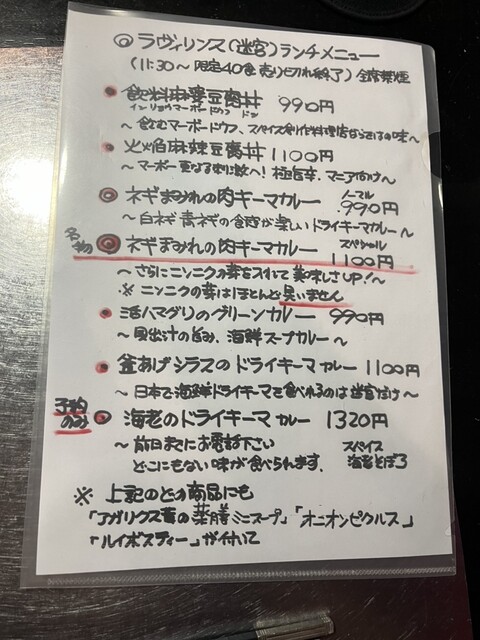 ◎ ラヴィリンス(迷宮)ランチメニュー
(11:30〜 限定40食 売り切れ終了) 全席禁煙
飲料麻婆豆腐丼 990円
インリョウマーボードウフ ドン
〜飲むマーボードウフ、スパイス創作料理店ならではの味〜
火焔麻辣豆腐丼 1100円
〜マーボー更なる刺激へ! 極旨辛、マニア向け〜
ネギまみれの肉キーマカレー ノーマル 990円
〜白ネギ 青ネギの食感が楽しいドライキーマカレー〜
名物 ネギまみれの肉キーマカレー スペシャル 1100円
〜さらにニンニクの芽を入れて美味しさUP!〜
※ ニンニクの芽はほとんど臭いません
活ハマグリのグリーンカレー 990円
〜貝出汁の旨み、海鮮スープカレー〜
釜あげシラスのドライキーマカレー 1100円
〜日本で海鮮ドライキーマを食べれるのは迷宮だけ〜
予約のみ 海老のドライキーマカレー 1320円
〜前日までにお電話下さい スパイス
どこにもない味が食べられます。 海老そぼろ
※ 上記のどの商品にも
「アガリクス茸の薬膳ミニスープ」「オニオンピクルス」
「ルイボスティー」が付いて